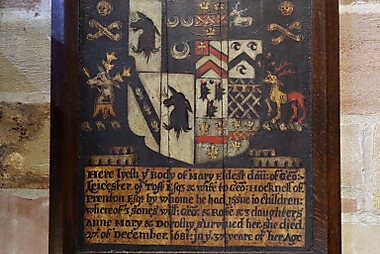 Here lyeth yͤ Body of Mary Eldest dau: of Geo:
Leicester of Toft Esqʳ & wife to Geo: Hocknell of
Prenton Esqʳ by whome he had issue in children:
whereof 3 sones will: Geo: & Robᵗ & 3 daughters
Anne Mary & Dorothy survived her, she died
of December 1681: in yͤ 3 yeare of her Age